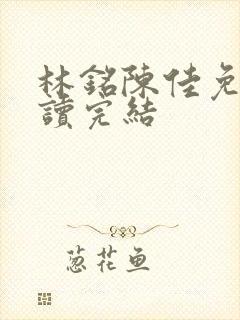 林銘陳佳免
讀完結
葱花鱼